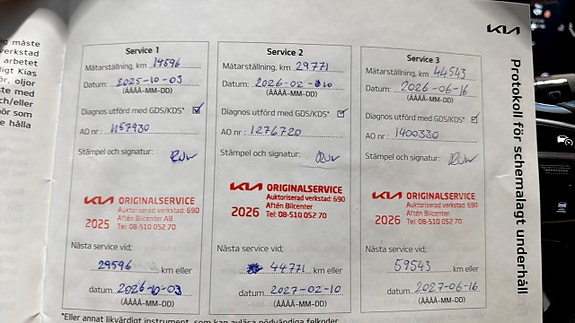 KIA
Protokoll för schemalagt underhåll
ig måste
verkstad
arbetet
ligt Kias
r, oljor
ste med
ch/eller
bör som
e hålla
Service 1
Mätarställning, km 14596
Datum: 2025-10-03
(ÅÅÅÅ-MM-DD)
Diagnos utförd med GDS/KDS*
AO nr : 1157930
Stämpel och signatur:
KIA ORIGINALSERVICE
Auktoriserad verkstad: 690
2025 Aftén Bilcenter AB
Tel: 08-510 052 70
Nästa service vid;
29596 km eller
datum 2026-10-03
(ÅÅÅÅ-MM-DD)
Service 2
Mätarställning, km 29771
Datum: 2026-02-10
(ÅÅÅÅ-MM-DD)
Diagnos utförd med GDS/KDS*
AO nr : 1276720
Stämpel och signatur:
KIA ORIGINALSERVICE
Auktoriserad verkstad: 690
2026 Aftén Bilcenter
Tel: 08-510 052 70
Nästa service vid;
44771 km eller
datum 2027-02-10
(ÅÅÅÅ-MM-DD)
Service 3
Mätarställning, km 44543
Datum: 2026-06-16
(ÅÅÅÅ-MM-DD)
Diagnos utförd med GDS/KDS*
AO nr : 1400330
Stämpel och signatur:
KIA ORIGINALSERVICE
Auktoriserad verkstad: 690
2026 Aftén Bilcenter
Tel: 08-510 052 70
Nästa service vid;
59543 km eller
datum 2027-06-16
(ÅÅÅÅ-MM-DD)
*Eller annat likvärdigt instrument, som kan avläsa nödvändiga felkoder